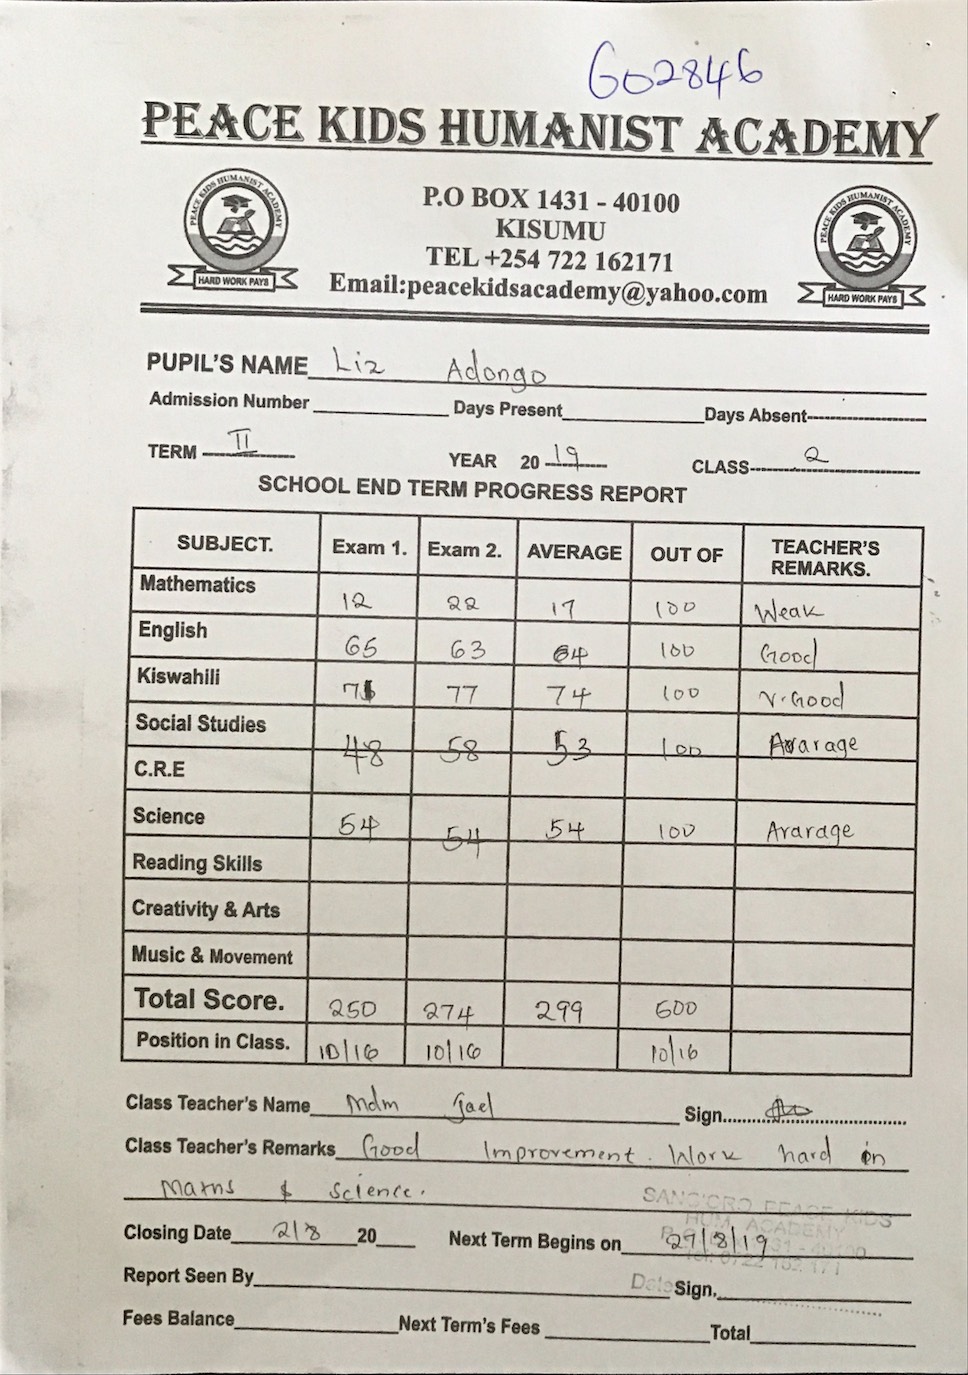 G02846
PEACE KIDS HUMANIST ACADEMY
PEACE KIDS HUMANIST ACADEMY
HARD WORK PAYS
P.O BOX 1431 - 40100
KISUMU
TEL +254 722 162171
Email:peacekidsacademy@yahoo.com
PEACE KIDS HUMANIST ACADEMY
HARD WORK PAYS
PUPIL'S NAME Liz Adongo
Admission Number Days Present Days Absent
TERM II YEAR 2019 CLASS 2
SCHOOL END TERM PROGRESS REPORT
SUBJECT. Exam 1. Exam 2. AVERAGE OUT OF TEACHER'S REMARKS.
Mathematics 12 22 17 100 Weak
English 65 63 64 100 Good
Kiswahili 71 77 74 100 V.Good
Social Studies 48 58 53 100 Avarage
C.R.E
Science 54 54 54 100 Avarage
Reading Skills
Creativity & Arts
Music & Movement
Total Score. 250 274 299 500
Position in Class. 10/16 10/16 10/16
Class Teacher's Name Mdm Jael Sign
Class Teacher's Remarks Good Improvement. Work hard in
Maths & Science.
SANG'ORO PEACE KIDS
HUM. ACADEMY
Closing Date 2/8 20 Next Term Begins on 27/8/19
Tel: 0722 162 171
Report Seen By Date Sign.
Fees Balance Next Term's Fees Total